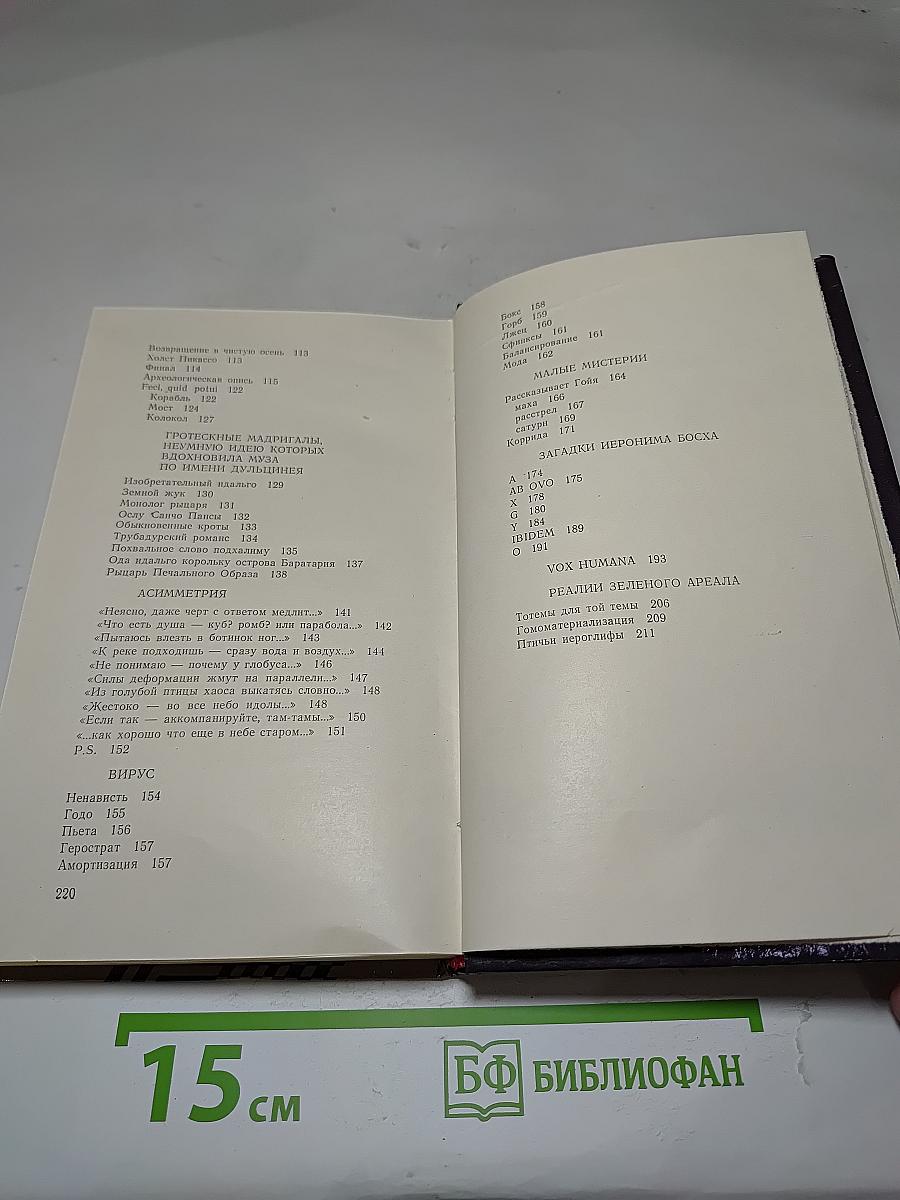 Возвращение в чистую осень 113
Холст Пикассо 113
Финал 114
Археологическая опись 115
Feci, quid potui 122
Корабль 122
Мост 124
Колокол 127
ГРОТЕСКНЫЕ МАДРИГАЛЫ,
НЕУМНУЮ ИДЕЮ КОТОРЫХ
ВДОХНОВИЛА МУЗА
ПО ИМЕНИ ДУЛЬЦИНЕЯ
Изобретательный идальго 129
Земной жук 130
Монолог рыцаря 131
Ослу Санчо Пансы 132
Обыкновенные кроты 133
Трубадурский романс 134
Похвальное слово подхалиму 135
Ода идальго корольку острова Баратария 137
Рыцарь Печального Образа 138
АСИММЕТРИЯ
«Неясно, даже черт с ответом медлит...» 141
«Что есть душа — куб? ромб? или парабола...» 142
«Пытаюсь влезть в ботинок ног...» 143
«К реке подходишь — сразу вода и воздух...» 144
«Не понимаю — почему у глобуса...» 146
«Силы деформации жмут на параллели...» 147
«Из голубой птицы хаоса выкатясь словно...» 148
«Жестоко — во все небо идолы...» 148
«Если так — аккомпанируйте, там-тамы...» 150
«...как хорошо что еще в небе старом...» 151
P.S. 152
ВИРУС
Ненависть 154
Годо 155
Пьета 156
Герострат 157
Амортизация 157
220
Бокс 158
Горб 159
Лжец 160
Сфинксы 161
Балансирование 161
Мода 162
МАЛЫЕ МИСТЕРИИ
Рассказывает Гойя 164
маха 166
расстрел 167
сатурн 169
Коррида 171
ЗАГАДКИ ИЕРОНИМА БОСХА
A 174
AB OVO 175
X 178
G 180
Y 184
IBIDEM 189
O 191
VOX HUMANA 193
РЕАЛИИ ЗЕЛЕНОГО АРЕАЛА
Тотемы для той темы 206
Гомоматериализация 209
Птичьи иероглифы 211
15 см
БФ БИБЛИОФАН